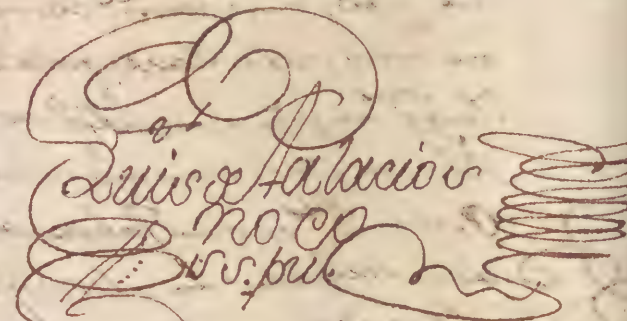 Luis de Palacios
no co
ss. pu.